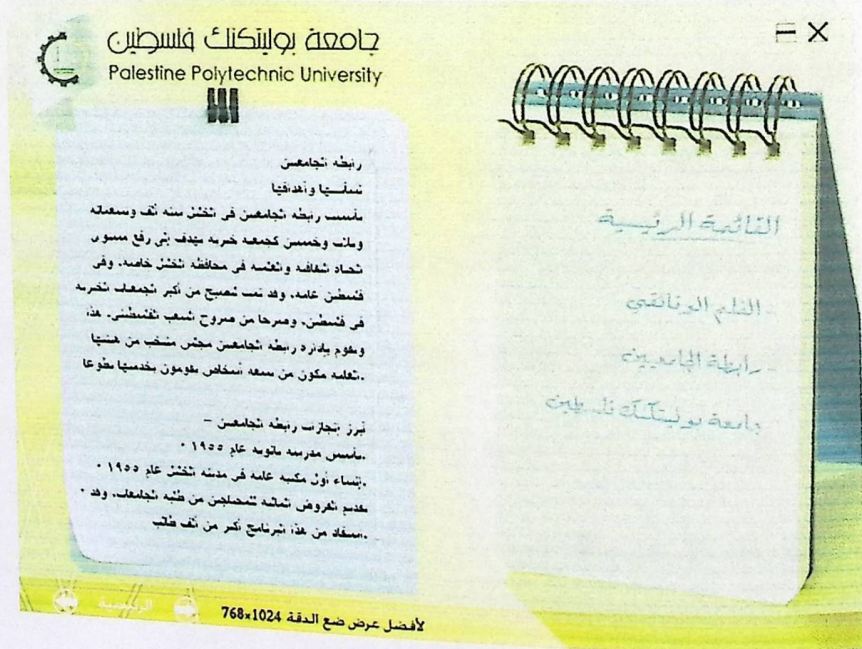 جامعة بوليتكنك فلسطين
Palestine Polytechnic University
رابطة الجامعيين
نشأتها وأهدافها
تأسست رابطة الجامعيين في الخليل سنة ألف وتسعمائة
وثلاث وخمسين كجمعية خيرية تهدف إلى رفع مستوى
الحياة الثقافية والعلمية في محافظة الخليل خاصة، وفي
فلسطين عامة، وقد نمت لتصبح من أكبر الجمعيات الخيرية
في فلسطين، وصرحا من صروح الشعب الفلسطيني. هذا
ويقوم بإدارة رابطة الجامعيين مجلس منتخب من هيئتها
.العامة مكون من تسعة أشخاص يقومون بخدمتها تطوعا
أبرز إنجازات رابطة الجامعيين –
.تأسيس مدرسة ثانوية عام ١٩٥٥ •
.إنشاء أول مكتبة عامة في مدينة الخليل عام ١٩٥٥ •
تقديم القروض المالية للمحتاجين من طلبة الجامعات، وقد •
.استفاد من هذا البرنامج أكثر من ألف طالب
القائمة الرئيسية
- الفلم الوثائقي
- رابطة الجامعيين
جامعة بوليتكنك فلسطين
الرئيسية
لأفضل عرض ضع الدقة 1024×768